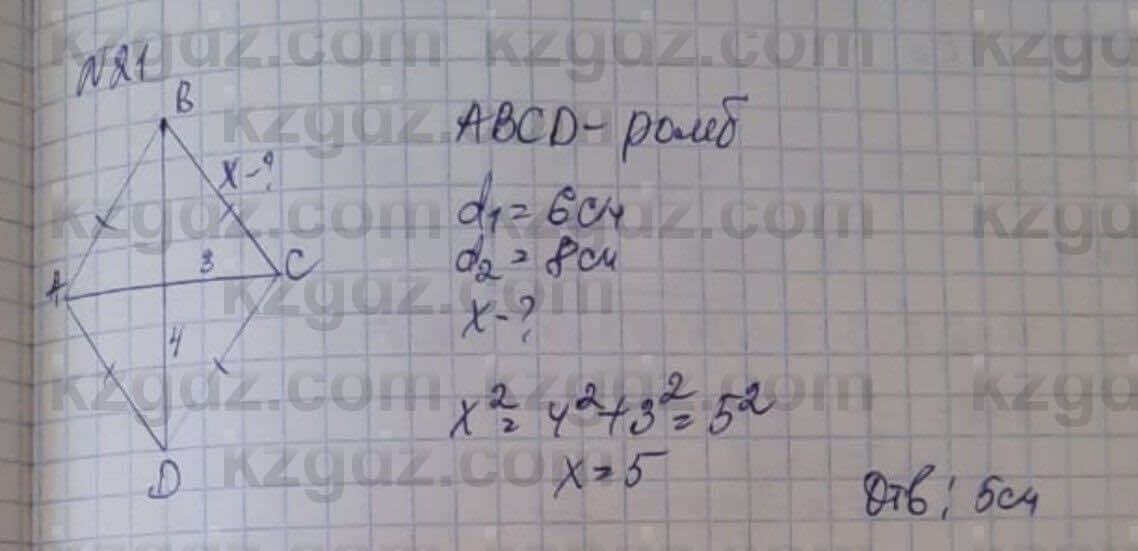 N21
B
ABCD - ромб
x - ?
d1 = 6 см
d2 = 8 см
A
3
C
x - ?
4
x² = 4² + 3² = 5²
x = 5
D
Отв: 5 см
kzgdz.com kzgdz.com kzgd
kzgdz.
kzgdz.com kzgdz.com kzgd
kzgdz.com
kzgdz.com kzgdz.com kzgd
kzgdz.com